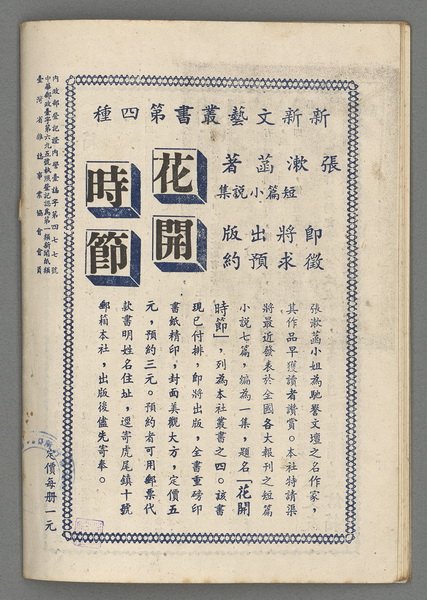 新新文藝叢書第四種
張漱菡著
短篇小說集
花開時節
即將出版
徵求預約
張漱菡小姐為馳譽文壇之名作家，
其作品早獲讀者讚賞。本社特請渠
將最近發表於全國各大報刊之短篇
小說七篇，編為一集，題名「花開
時節」，列為本社叢書之四。該書
現已付排，即將出版，全書重磅印
書紙精印，封面美觀大方，定價五
元，預約三元。預約者可用郵票代
款書明姓名住址，逕寄虎尾鎮十號
郵箱本社，出版後儘先寄奉。
內政部登記證內警臺誌字第四七七號
中華郵政臺字第六九五號執照登記認為第一類新聞紙類
臺灣省雜誌事業協會會員
定價每册一元